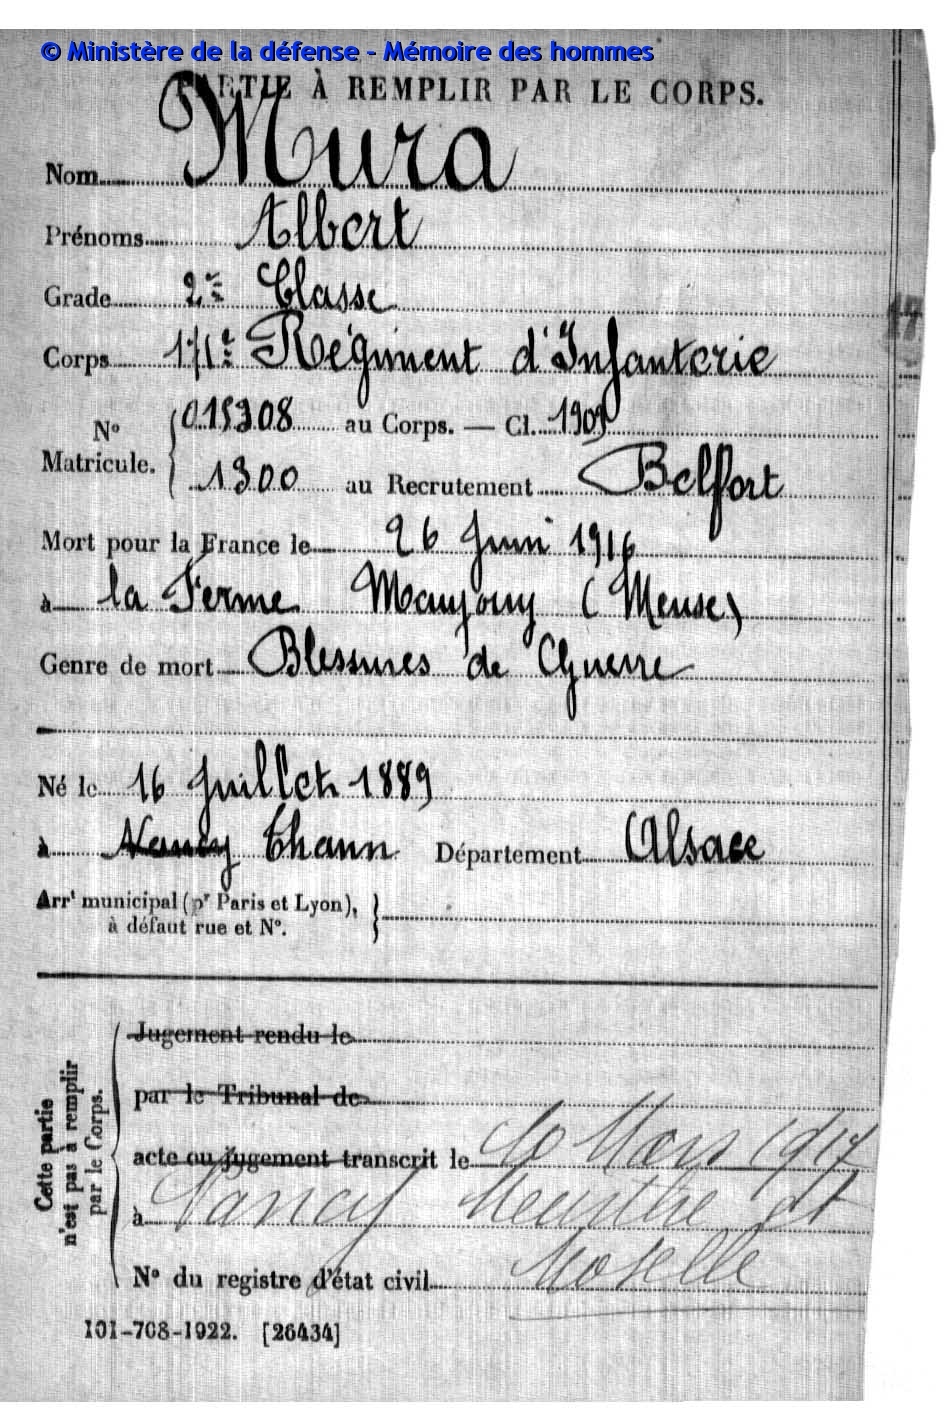 © Ministère de la défense - Mémoire des hommes
PARTIE À REMPLIR PAR LE CORPS.
Nom Mura
Prénoms Albert
Grade 2e Classe
Corps 171e Régiment d'Infanterie
No Matricule. 015308 au Corps. — Cl. 1909
1300 au Recrutement Belfort
Mort pour la France le 26 Juin 1916
à la Ferme Maujouy (Meuse)
Genre de mort Blessures de Guerre
Né le 16 Juillet 1889
à Nancy Thann Département Alsace
Arrt municipal (pr Paris et Lyon),
à défaut rue et No.
Cette partie
n'est pas à remplir
par le Corps.
Jugement rendu le
par le Tribunal de
acte ou jugement transcrit le Mars 1917
à Nancy Meurthe et
Moselle
No du registre d'état civil
101-708-1922. [26434]